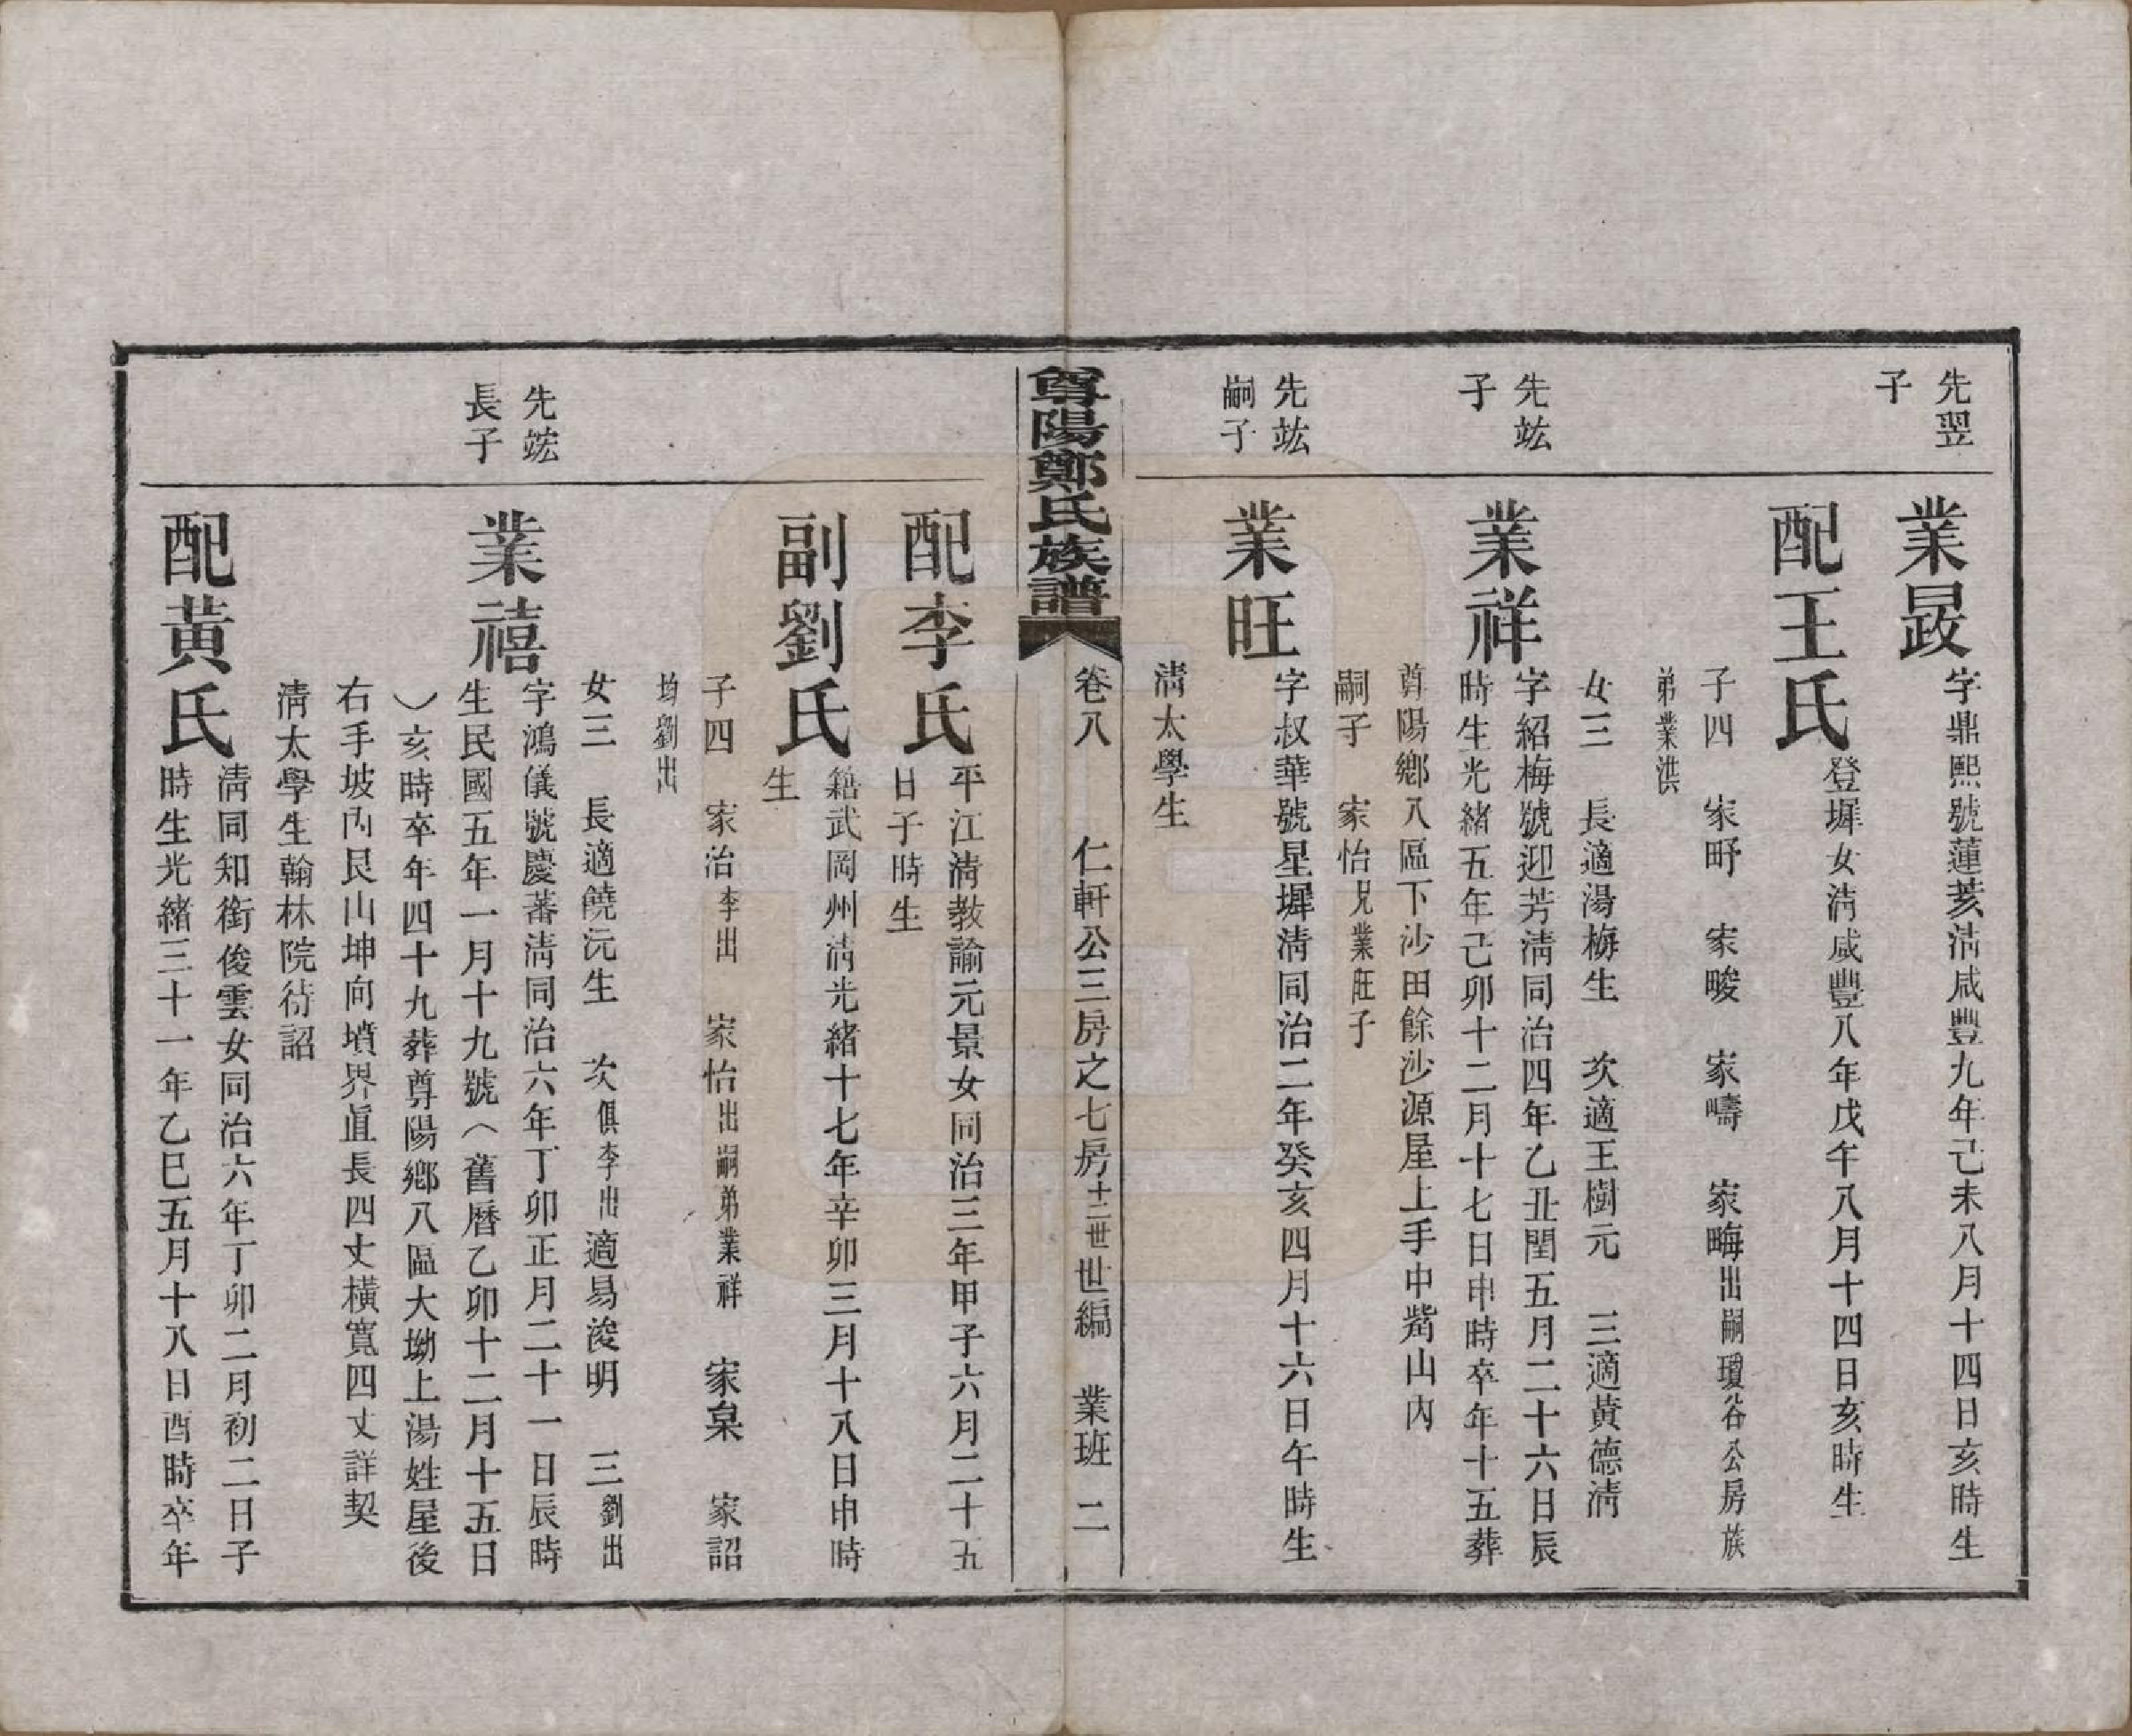 先翌
子
業晸
字鼎熙號蓮荄淸咸豐九年己未八月十四日亥時生
配王氏
登墀女淸咸豐八年戊午八月十四日亥時生
子四 家野 家畯 家疇 家畮出嗣瓊谷公房族
弟業洪
女三 長適湯梅生 次適王樹元 三適黃德淸
先竑
子
業祥
字紹梅號迎芳淸同治四年乙丑閏五月二十六日辰
時生光緒五年己卯十二月十七日申時卒年十五葬
尊陽鄉八區下沙田餘沙源屋上手中嵩山內
嗣子 家怡兄業旺子
先竑
嗣子
業旺
字叔華號星墀淸同治二年癸亥四月十六日午時生
淸太學生
尊陽鄭氏族譜 卷八 仁軒公三房之七房十二世世編 業班 二
配李氏
平江淸教諭元景女同治三年甲子六月二十五
日子時生
副劉氏
籍武岡州淸光緒十七年辛卯三月十八日申時
生
子四 家治李出 家怡出嗣弟業祥 家梟 家詔
均劉出
女三 長適饒沅生 次俱李出適易浚明 三劉出
先竤
長子
業禧
字鴻儀號慶蕃淸同治六年丁卯正月二十一日辰時
生民國五年一月十九號（舊曆乙卯十二月十五日
）亥時卒年四十九葬尊陽鄉八區大坳上湯姓屋後
右手坡內艮山坤向墳界眞長四丈橫寬四丈詳契
淸太學生翰林院待詔
配黃氏
淸同知銜俊雲女同治六年丁卯二月初二日子
時生光緒三十一年乙巳五月十八日酉時卒年